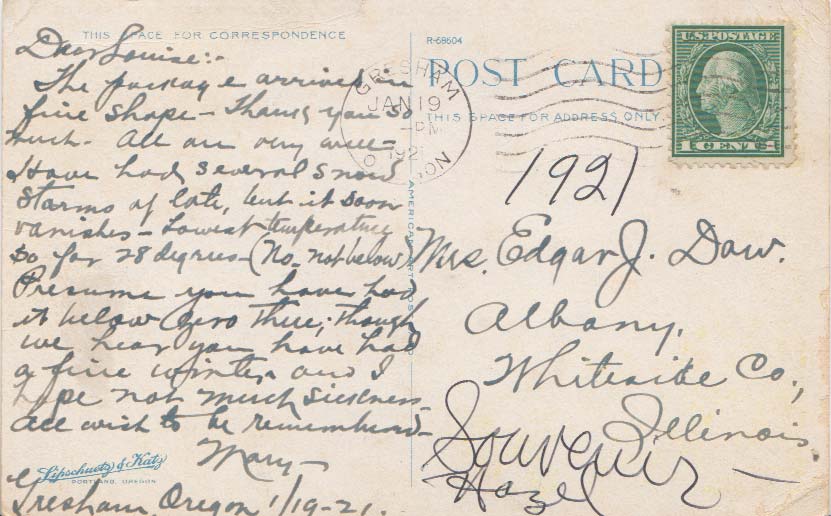 THIS SPACE FOR CORRESPONDENCE
Dear Louise:-
The package arrived in
fine shape - Thank you so
much - All are very well -
Have had several snow
storms of late, but it soon
vanishes - Lowest temperature
so far 28 degrees - (No, not below)
Presume you have had
it below zero there; though
we hear you have had
a fine winter, and I
hope not much sickness -
All wish to be remembered -
Mary -
Gresham, Oregon 1/19-21.
Lipschuetz & Katz
PORTLAND, OREGON
AMERICAN ART POST
R-68604
POST CARD
THIS SPACE FOR ADDRESS ONLY
GRESHAM
JAN 19
-PM
1921
U.S. POSTAGE
1 CENT 1
1921
Mrs. Edgar J. Daw.
Albany,
Whiteside Co.,
Illinois.
Souvenir -
Hazel